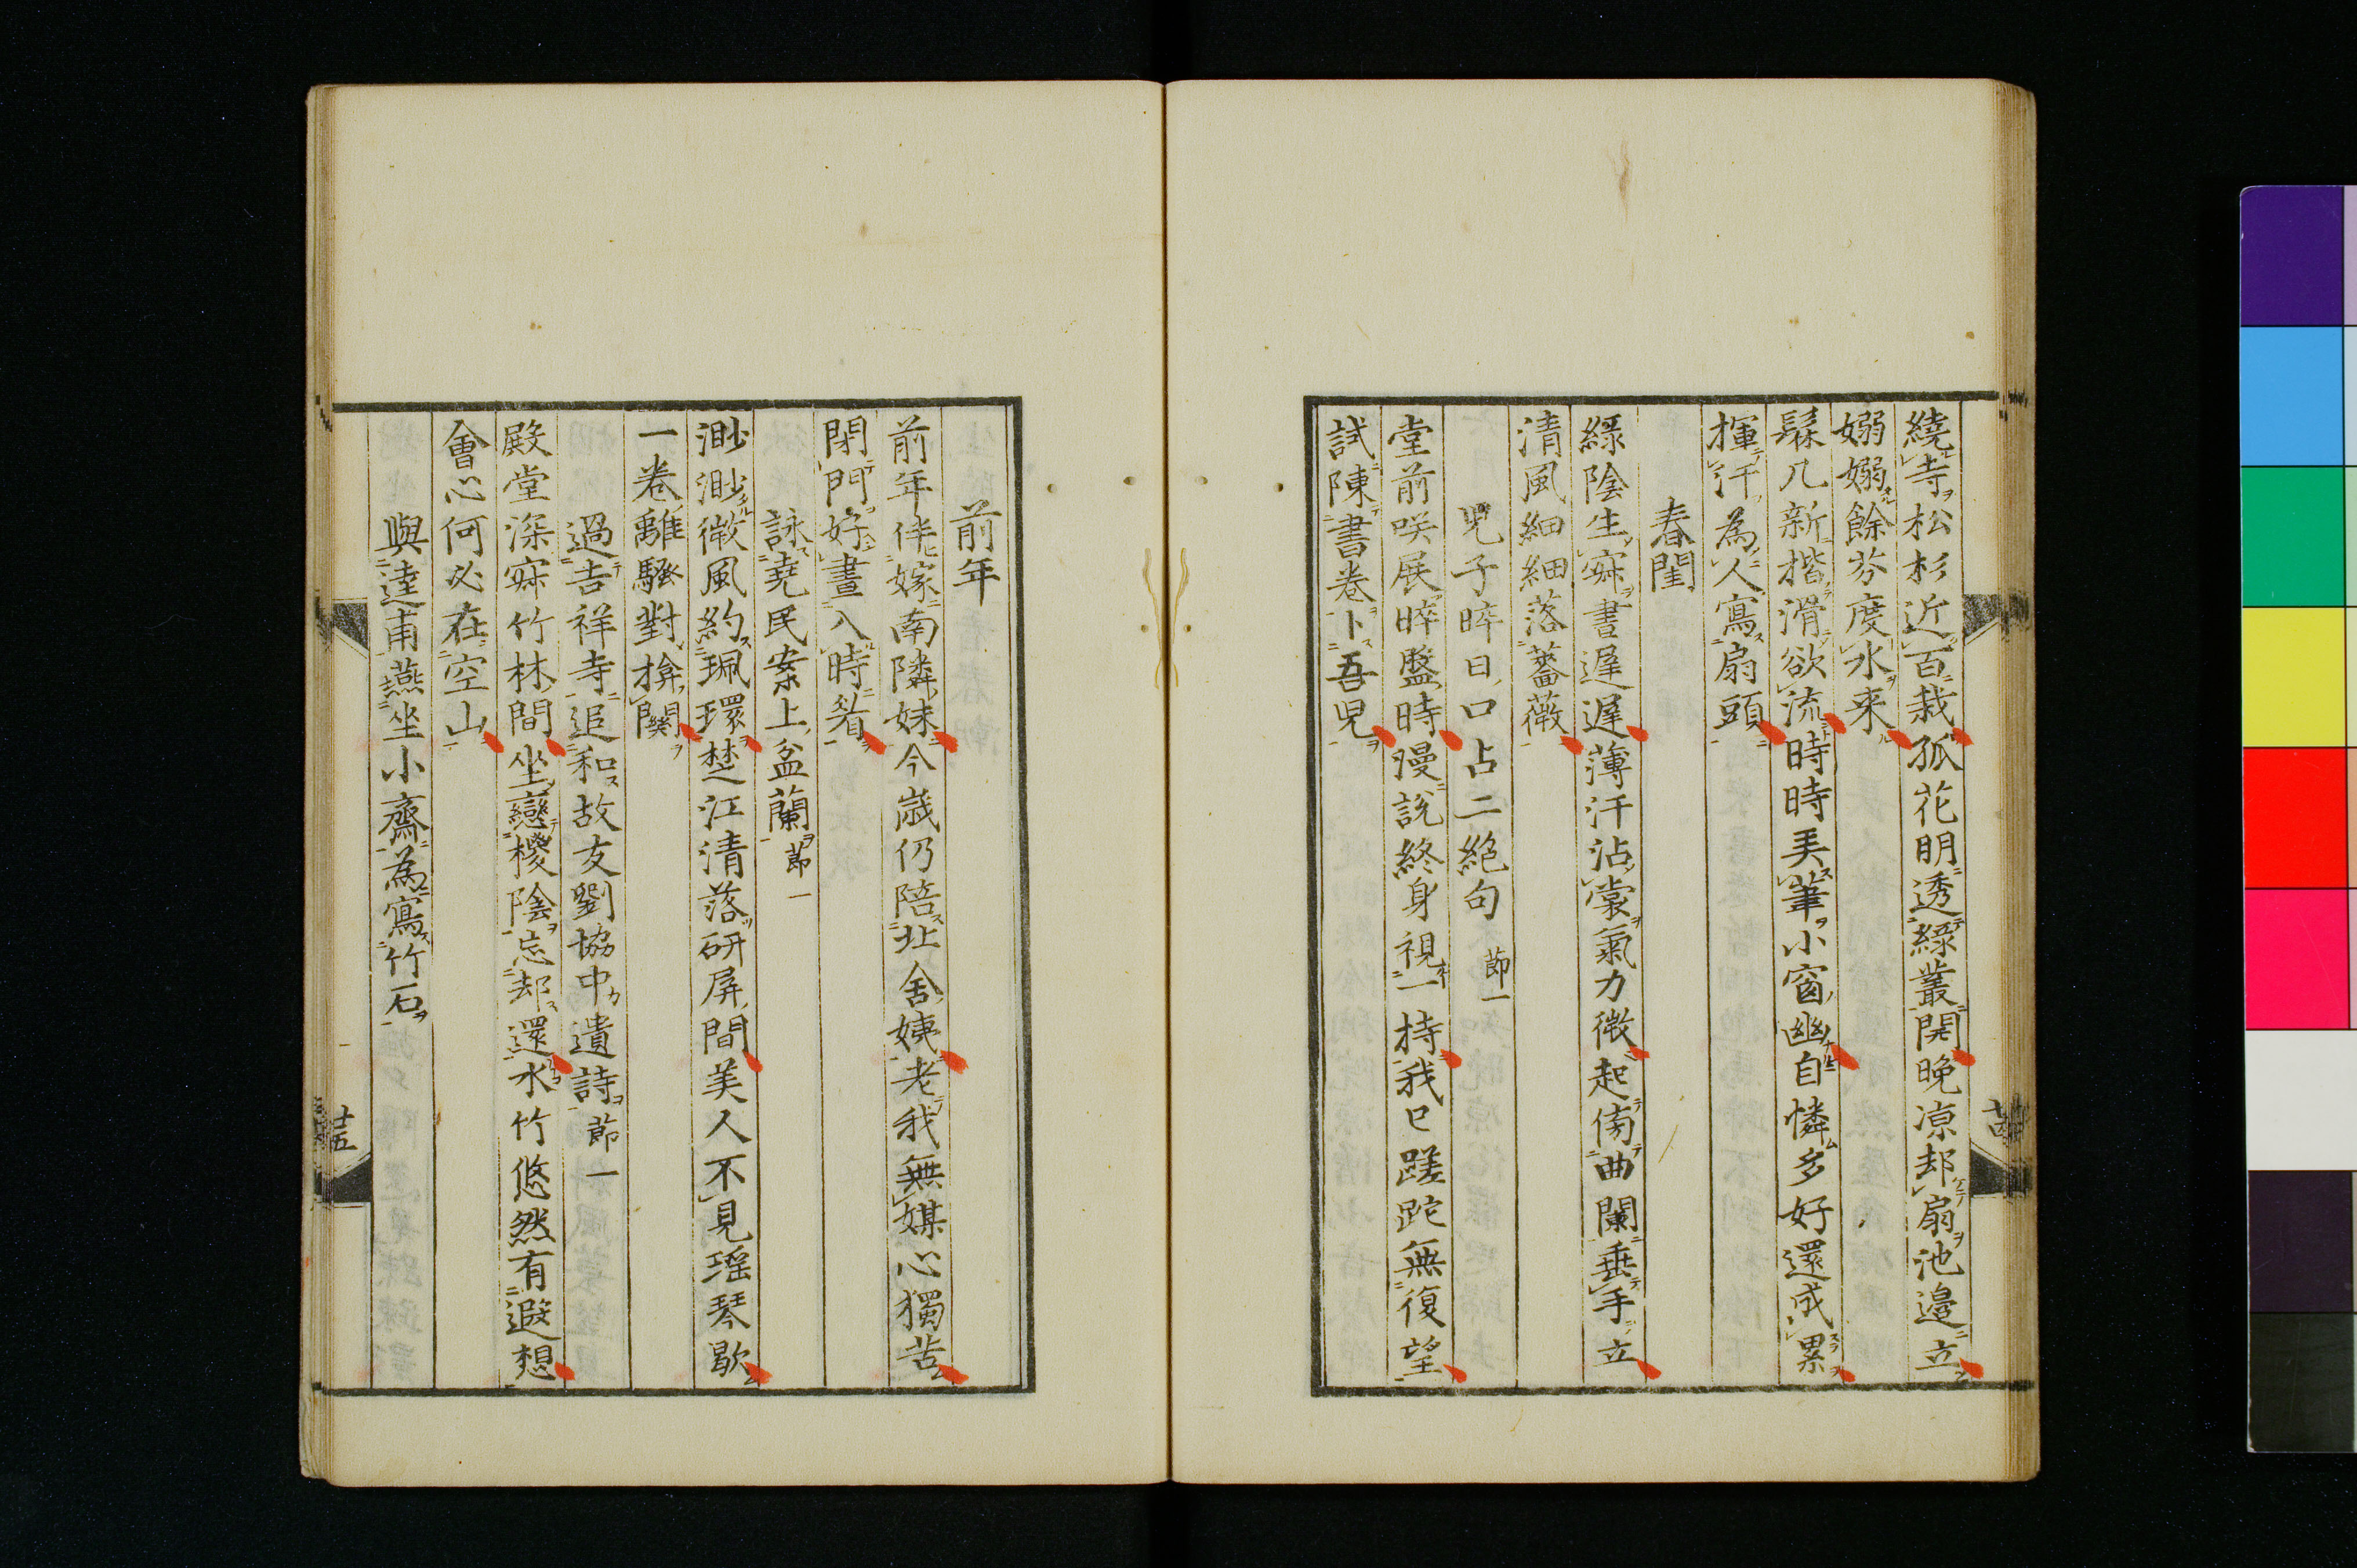 繞寺松杉近百栽孤花明透綠叢開晚凉却扇池邉立
嫋嫋餘芬度水来
髹几新揩滑欲流時時弄筆小窗幽自憐多好還成累
揮汗為人寫扇頭
春閨
綠陰生寂書遲遲薄汗沾裳氣力微起傍曲闌垂手立
清風細細落薔薇
児子晬日口占二絕句 節一
堂前咲展晬盤時謾說終身視一持我已蹉跎無復望
試陳書卷卜吾児
十四
前年
前年伴嫁南隣妹今歳仍陪北舍姨老我無媒心獨苦
閉門好畫入時眉
詠堯民案上盆蘭 節一
渺渺微風約珮環楚江清落研屏間美人不見瑶琴歇
一卷離騷對揜関
過吉祥寺追和故友劉協中遺詩 節一
殿堂深寂竹林間坐戀櫻陰忘却還水竹悠然有遐想
會心何必在空山
與逵甫燕坐小齋為寫竹石
十五